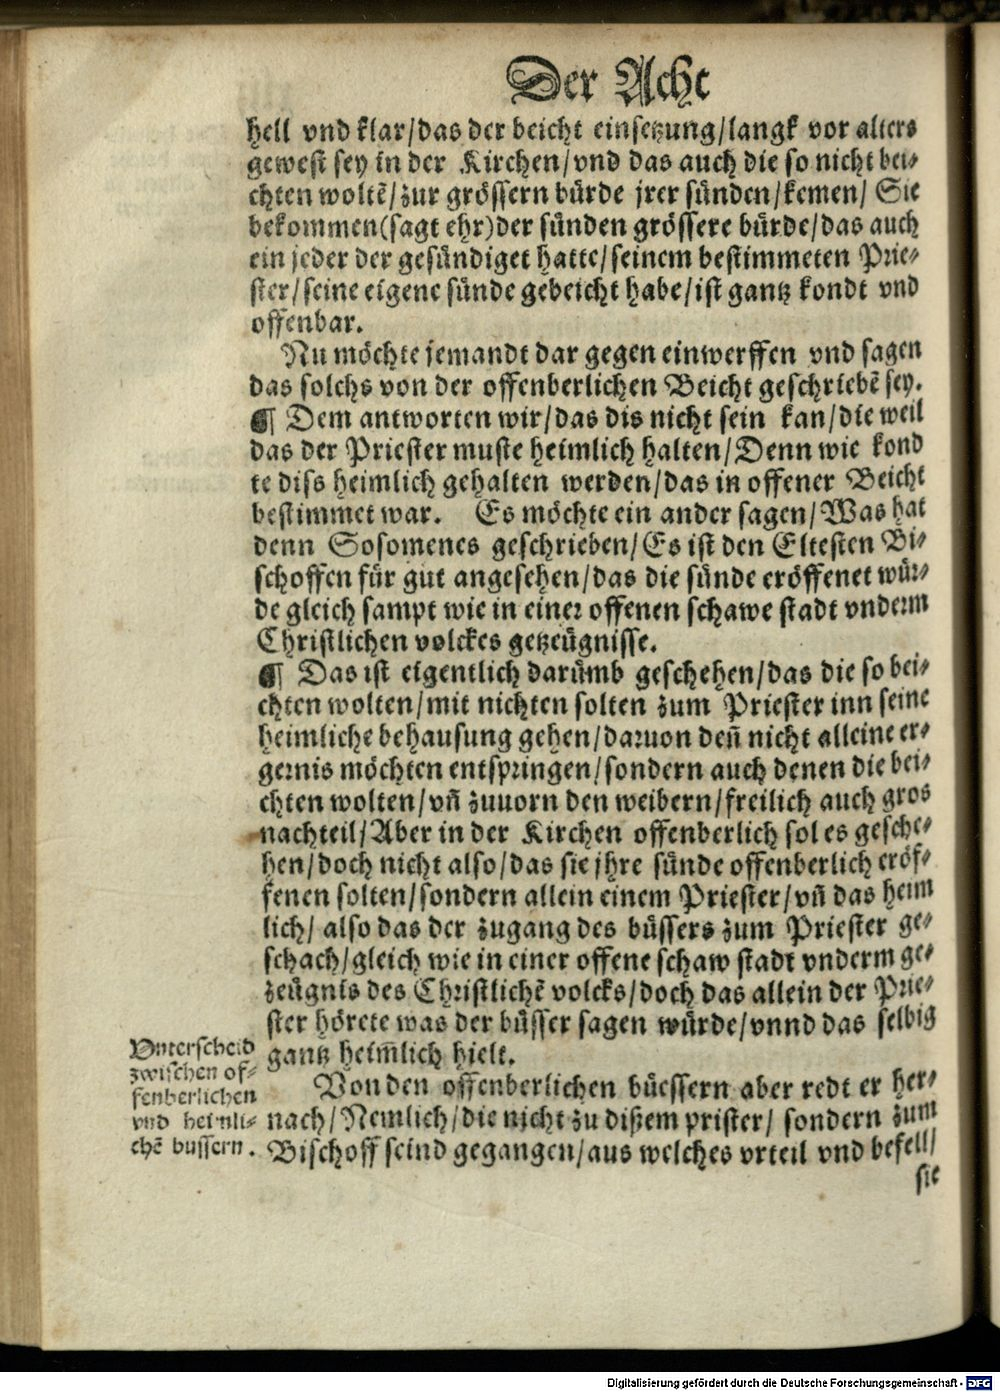 Der Acht
hell vnd klar/das der beicht einsetzung/langk vor alters
gewest sey in der Kirchen/vnd das auch die so nicht bei⸗
chten woltē/zur grössern bürde jrer sünden/kemen/ Sie
bekommen(sagt ehr)der sünden grössere bürde/das auch
ein jeder der gesündiget hatte/seinem bestimmeten Prie⸗
ster/seine eigene sünde gebeicht habe/ist gantz kondt vnd
offenbar.
Nu möchte jemandt dar gegen einwerffen vnd sagen
das solchs von der offenberlichen Beicht geschriebē sey.
¶ Dem antworten wir/das dis nicht sein kan/die weil
das der Priester muste heimlich halten/Denn wie kond
te diss heimlich gehalten werden/das in offener Beicht
bestimmet war. Es möchte ein ander sagen/Was hat
denn Sosomenes geschrieben/Es ist den Eltesten Bi⸗
schoffen für gut angesehen/das die sünde eröffenet wür⸗
de gleich sampt wie in einer offenen schawe stadt vnderm
Christlichen volckes getzeügnisse.
¶ Das ist eigentlich darümb geschehen/das die so bei⸗
chten wolten/mit nichten solten zum Priester inn seine
heimliche behausung gehen/daruon deñ nicht alleine er⸗
gernis möchten entspringen/sondern auch denen die bei⸗
chten wolten/vñ zuuorn den weibern/freilich auch gros
nachteil/Aber in der Kirchen offenberlich sol es gesche⸗
hen/doch nicht also/das sie jhre sünde offenberlich eröf⸗
fenen solten/sondern allein einem Priester/vñ das heim
lich/ also das der zugang des büssers zum Priester ge⸗
schach/gleich wie in einer offene schaw stadt vnderm ge⸗
zeügnis des Christlichē volcks/doch das allein der Prie⸗
ster hörete was der büsser sagen würde/vnnd das selbig
gantz heim̄lich hielt.
Vnterscheid
zwischen of⸗
fenberlichen
vnd heimli⸗
chē bussern.
Von den offenberlichen büessern aber redt er her⸗
nach/Nemlich/die nicht zu dißem prister/ sondern zum
Bischoff seind gegangen/aus welches vrteil vnd befell/
sie
Digitalisierung gefördert durch die Deutsche Forschungsgemeinschaft - DFG